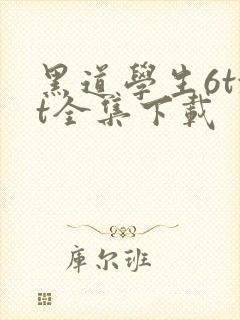 黑道學生6tx
t全集下載
庫尔班